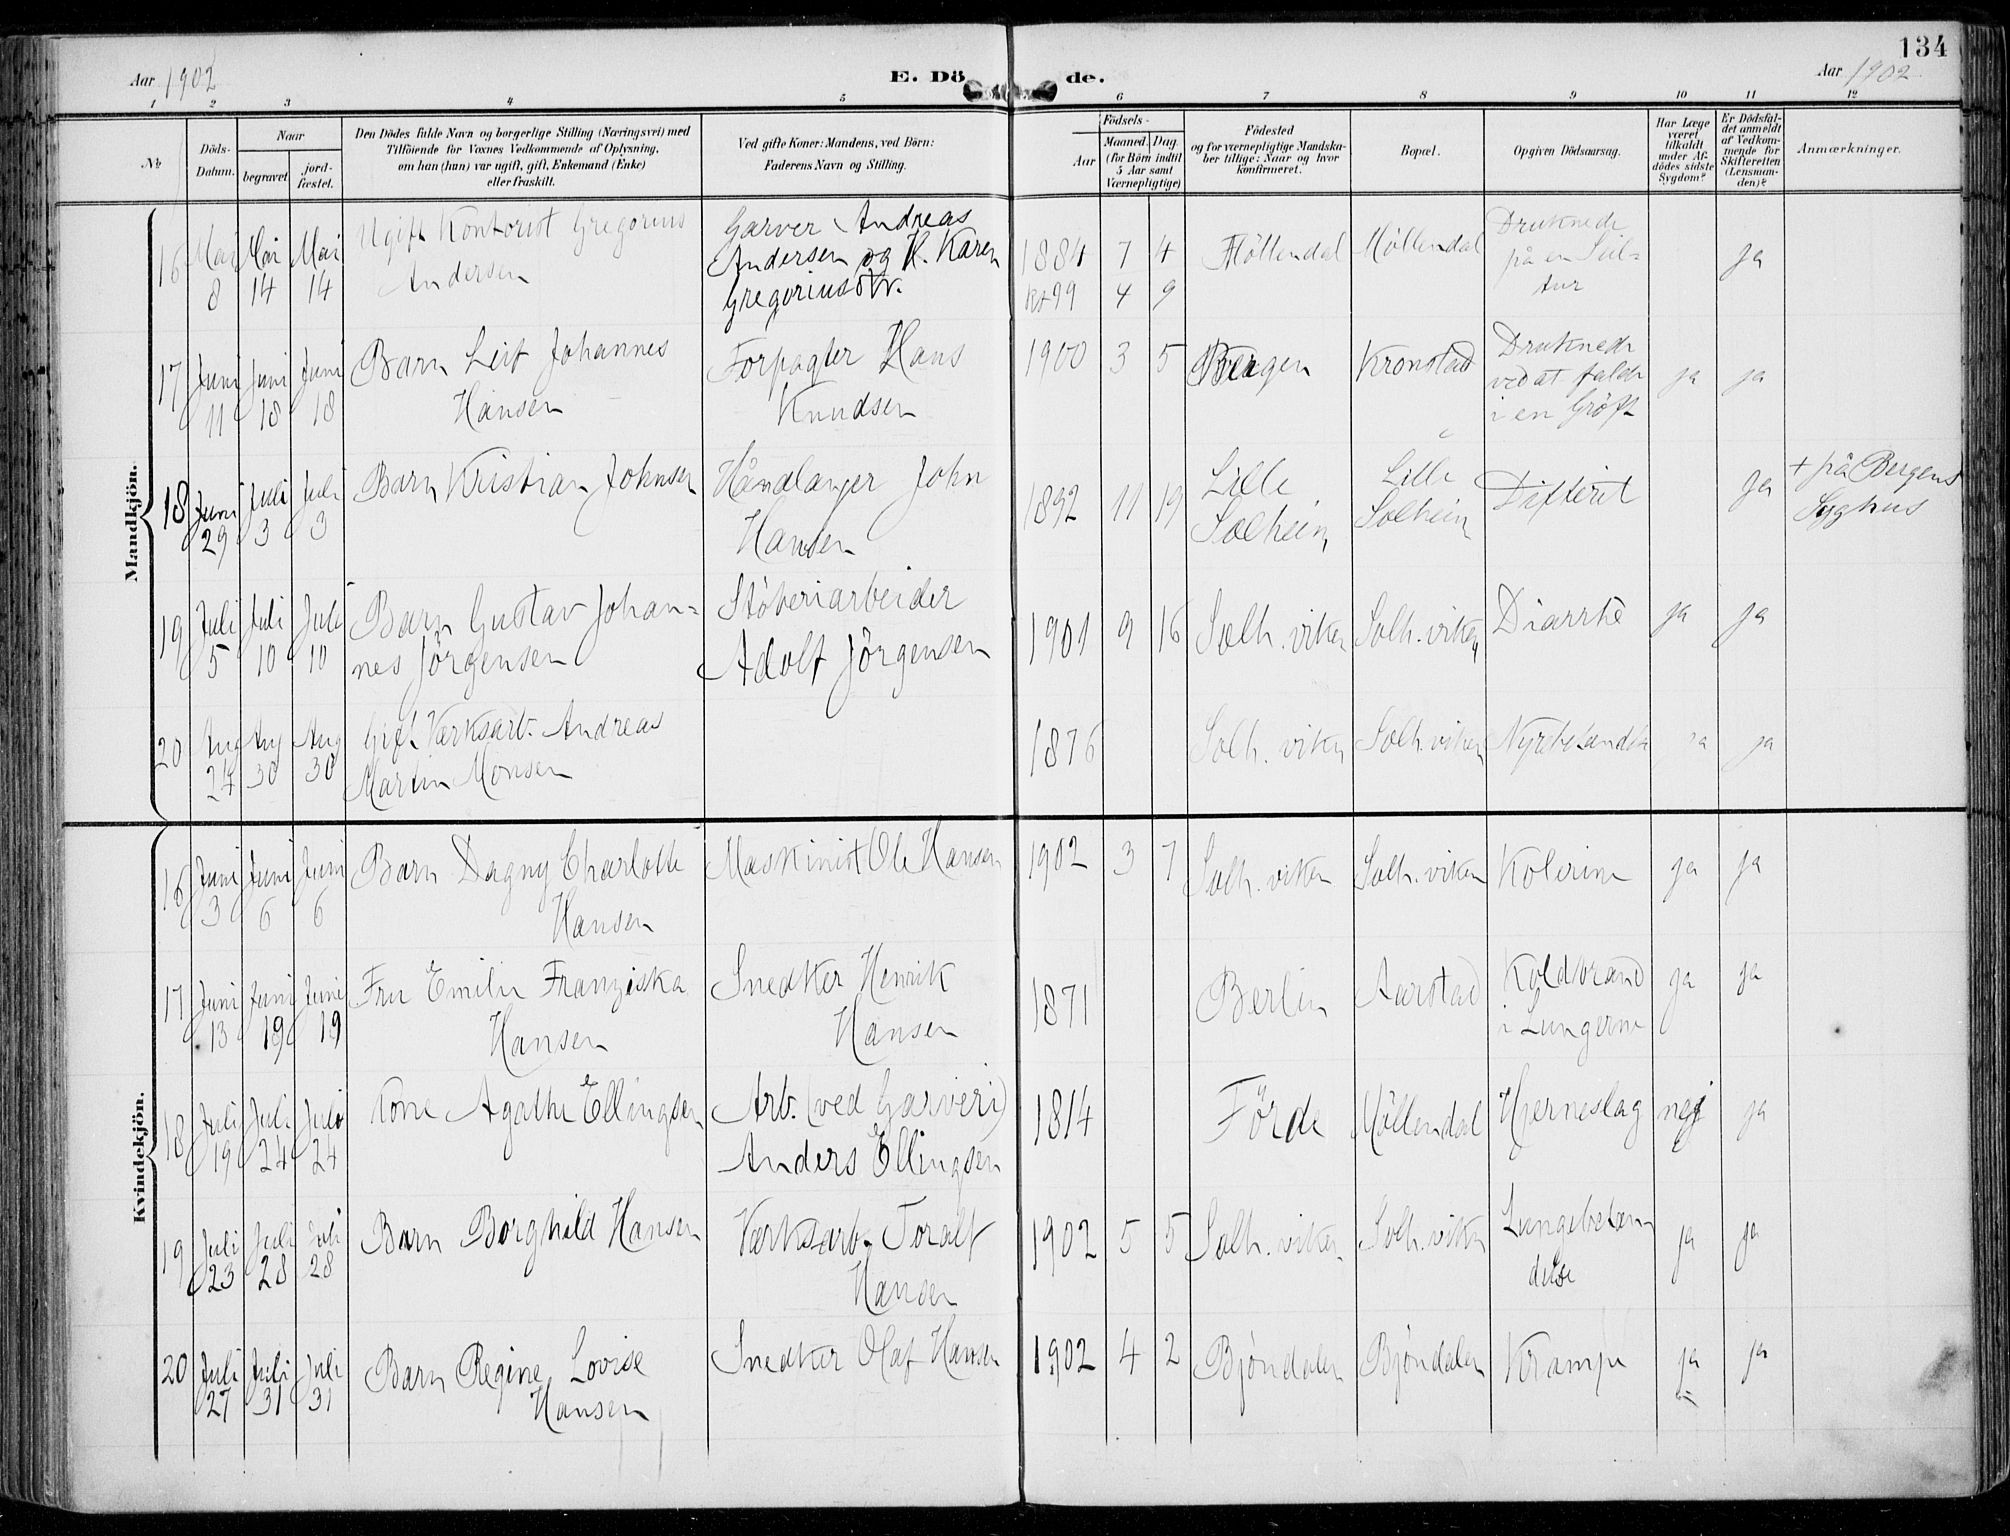 134
Aar 1902 E. Dö de. Aar 1902
1 2 3 4 5 6 7 8 9 10 11 12
№
Döds-
Datum.
Naar
begravet.
jord-
fæstet.
Den Dödes fulde Navn og borgerlige Stilling (Næringsvei) med
Tilföiende for Voxnes Vedkommende af Oplysning,
om han (hun) var ugift, gift, Enkemand (Enke)
eller fraskilt.
Ved gifte Koner: Mandens, ved Börn:
Faderens Navn og Stilling.
Födsels-
Aar
Maaned. Dag.
(for Börn indtil
5 Aar samt
Værnepligtige)
Födested
og for værnepligtige Mandska-
ber tillige: Naar og hvor
konfirmeret.
Bopæl.
Opgiven Dödsaarsag.
Har Læge
været
tilkaldt
under Af-
dödes sidste
Sygdom?
Er Dödsfal-
det anmeldt
af Vedkom-
mende for
Skifteretten
(Lensman-
den)?
Anmærkninger.
Mandkjön.
16
Mai
8
Mai
14
Mai
14
Ugift Kontorist Gregorius
Andersen
Garver Andreas
Andersen og H. Karen
Gregoriusdtr.
1884 7 4
99 4 9
Möllendal
Möllendal
Druknede
på en Seil-
tur
ja
17
Juni
11
Juni
18
Juni
18
Barn Leif Johannes
Hansen
Forpagter Hans
Knudsen
1900 3 5
Bergen
Kronstad
Druknede
ved at falde
i en Gröft
ja
ja
18
Juni
29
Juli
3
Juli
3
Barn Kristian Johnsen
Håndlanger John
Hansen
1892 11 19
Lille
Solheim
Lille
Solheim
Difterit
ja
+ på Bergens
Syghus
19
Juli
5
Juli
10
Juli
10
Barn Gustav Johan-
nes Jörgensen
Stöberiarbeider
Adolf Jörgensen
1901 9 16
Solh. viken
Solh. viken
Diarrhe
ja
ja
20
Aug
24
Aug
30
Aug
30
Gift Værksarb. Andreas
Martin Monsen
1876
Solh. viken
Solh. viken
ja
ja
Kvindekjön.
16
Juni
3
Juni
6
Juni
6
Barn Dagny Charlotte
Hansen
Maskinist Ole Hansen
1902 3 7
Solh. viken
Solh. viken
Kolerine
ja
ja
17
Juni
13
Juni
19
Juni
19
Fru Emilie Franziska
Hansen
Snedker Henrik
Hansen
1871
Berlin
Aarstad
Koldbrand
i Lungerne
ja
ja
18
Juli
19
Juli
24
Juli
24
Kone Agathe Ellingsen
Arb. (ved Garveri)
Anders Ellingsen
1814
Förde
Möllendal
Hjerneslag
nej
ja
19
Juli
23
Juli
28
Juli
28
Barn Borghild Hansen
Værksarb. Toralf
Hansen
1902 5 5
Solh. viken
Solh. viken
Lungebetæn
delse
ja
ja
20
Juli
27
Juli
31
Juli
31
Barn Regine Lovise
Hansen
Snedker Olaf Hansen
1902 4 2
Bjöndalen
Bjöndalen
Krampe
ja
ja